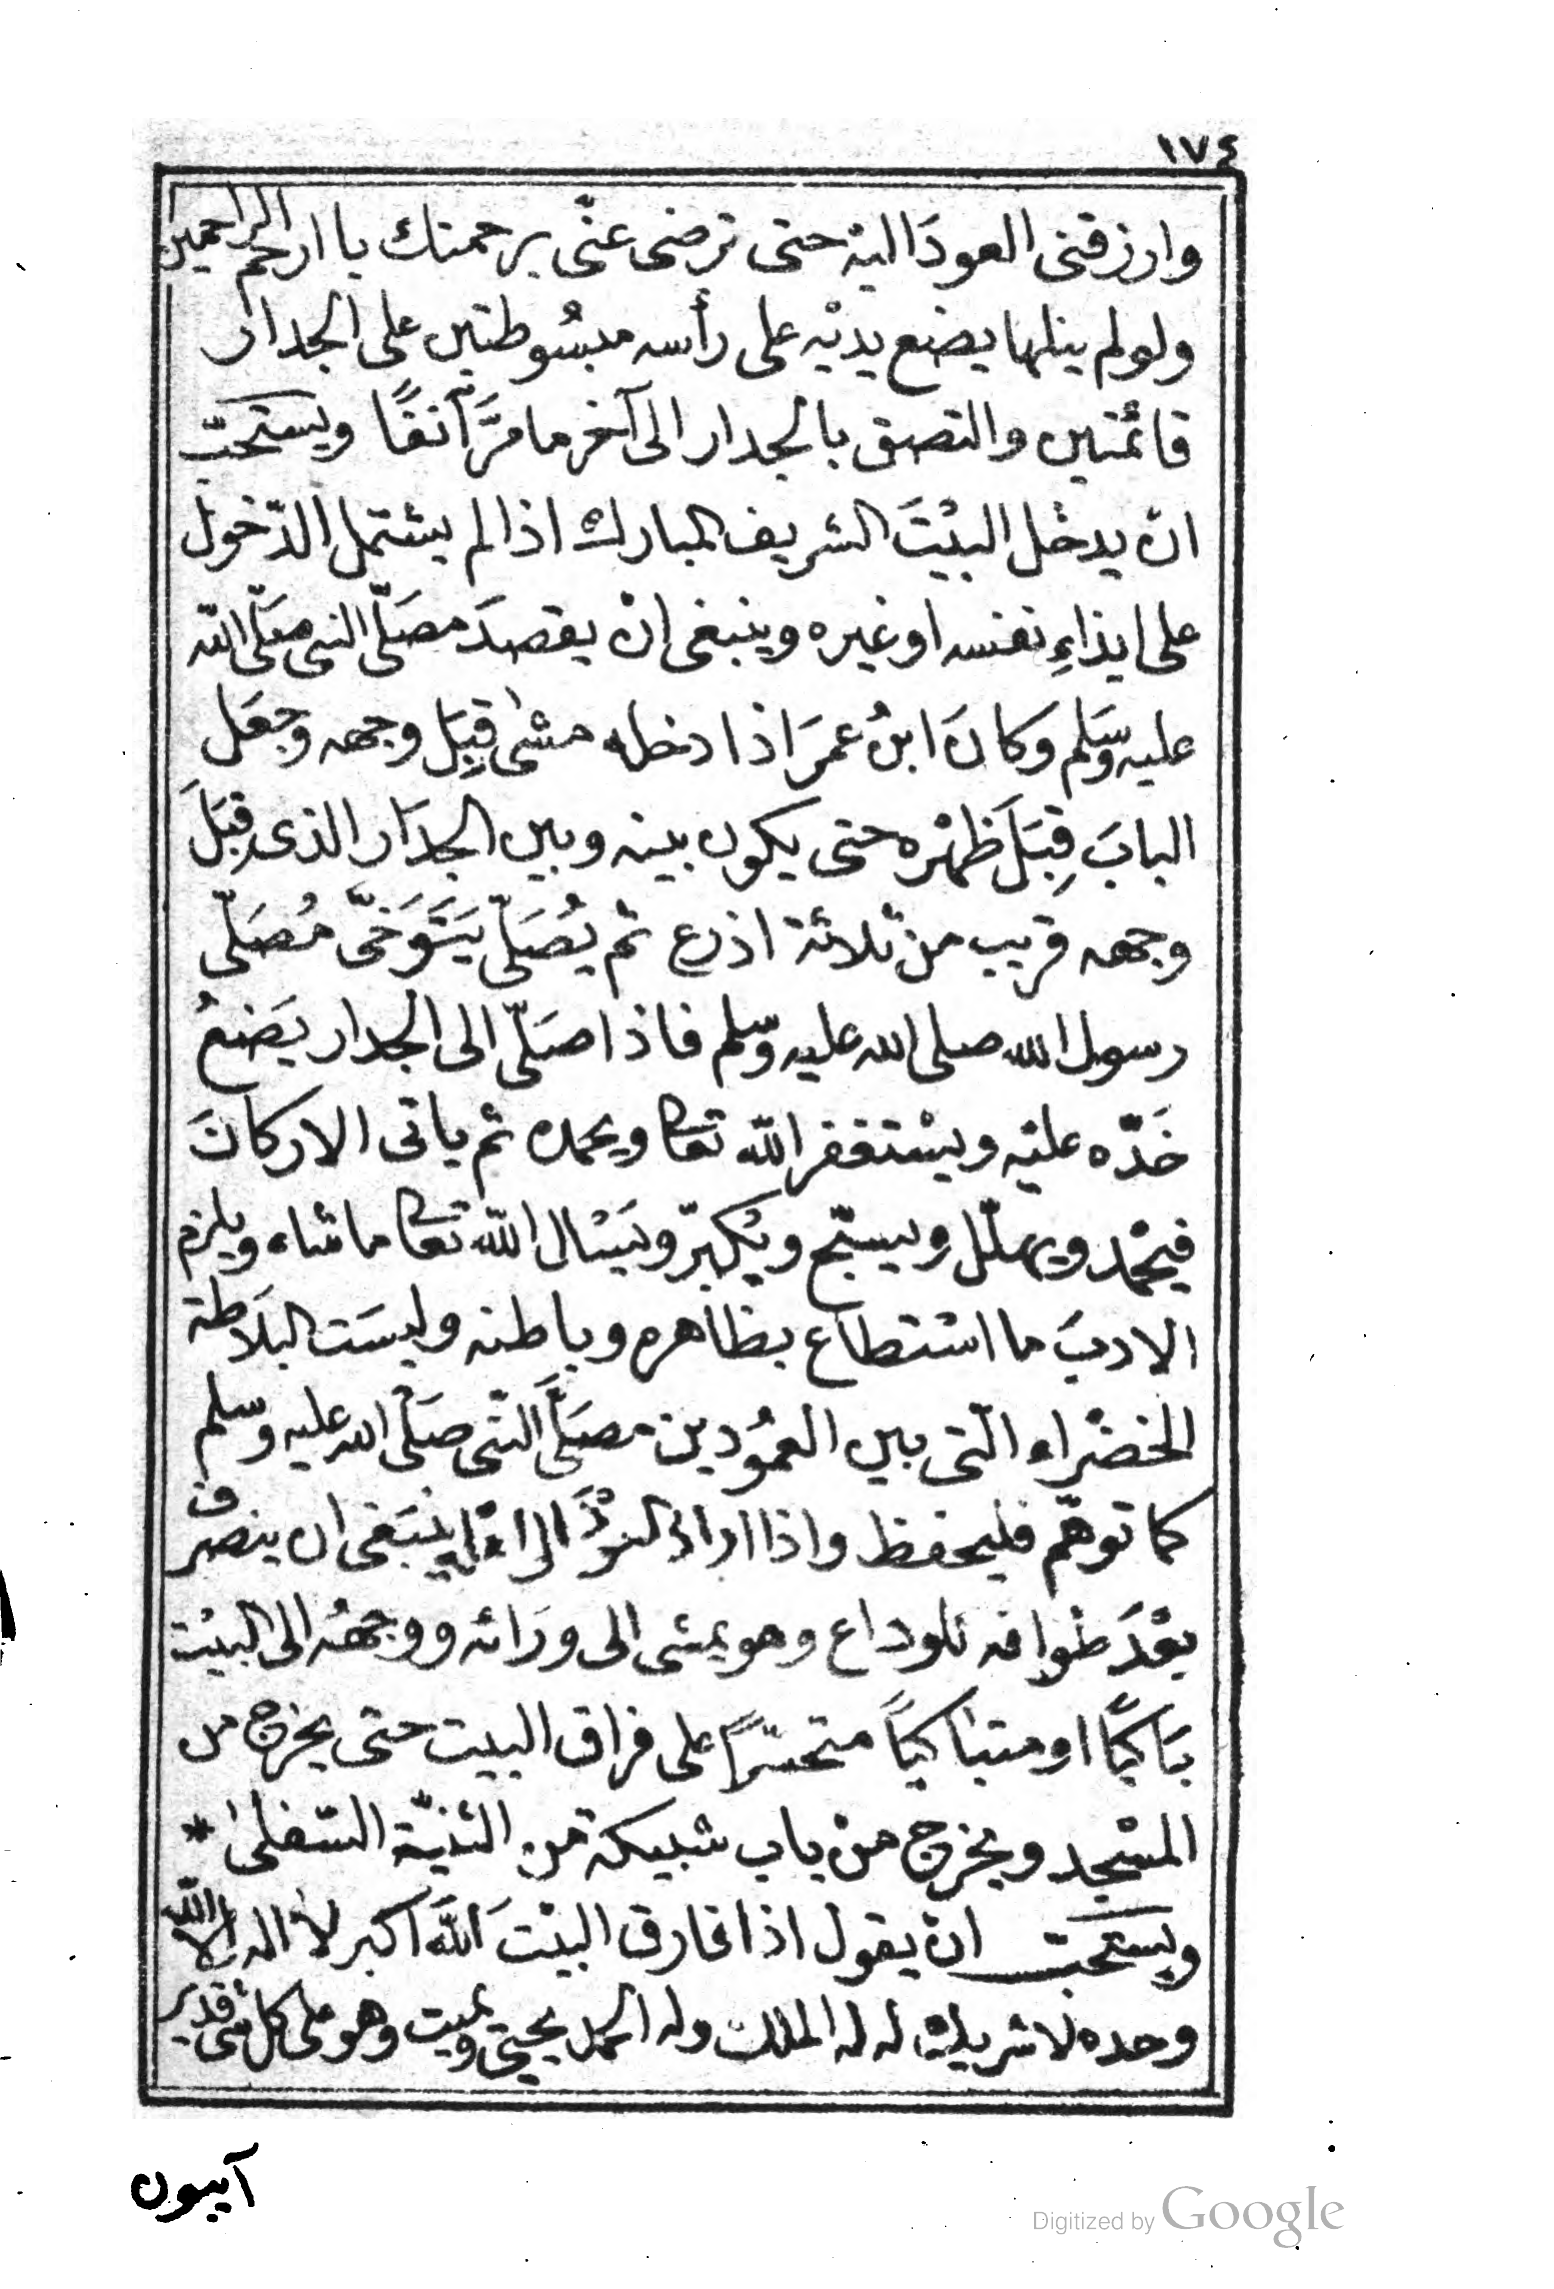 ١٧٤
وارزقنى العودَ اليْه حتى ترضى عنّى برحمتك يا ارحم الراحمين
ولو لم ينلها يضع يديْه على رأسه مبسُوطتين على الجدار
قائمتين والتصق بالجدار الى آخر ما مرَّ آنفًا ويستحبّ
انْ يدخل البيْتَ الشريف المبارك اذا لم يشتمل الدّخول
على ايذاءِ نفسه او غيره وينبغى انْ يقصدَ مصَلّى النبى صَلّى اللّه
عليه وسَلم وكانَ ابنُ عمرَ اذا دخله مشىٰ قِبَل وجهه وجعَل
البابَ قِبَلَ ظهْره حتى يكون بينه وبين الجدَار الذى قِبَلَ
وجهه قريب منْ ثلاثة اذرع ثم يُصَلّى يَتَوَخّى مُصَلّى
رسول الله صلى الله عليه وسلم فاذا صَلّى الى الجدار يَضعُ
خَدّه عليْه ويسْتغفر اللّه تعالى ويحمده ثم ياتى الاركانَ
فيحْمد ويهلّل ويسبّح ويُكبّر ويَسْال اللّه تعالى ما شاء ويلزم
الادبَ ما اسْتطاع بظاهره وباطنه وليسَت البلَاطة
الخضْراء الّتى بين العمُودين مصَلَّى النّبى صَلّى الله عليه وسلم
كما توهّم فليحفظ واذا اراد العَوْدَ الى اهْله ينبَغى ان ينصرف
بعْدَ طوافه للوداع وهو يمشى الى ورَائه ووجههُ الى البيْت
بَاكيًا او متباكيًا متحسّرًا على فراق البيت حتى يخرج من
المسْجد ويخرج منْ باب شبيكة من الثنيّة السّفلىٰ *
ويستحبّ انْ يقول اذا فارق البيْتَ اللّهُ اكبر لا اله الا اللّه
وحده لا شريك له له الملك وله الحمد يحيى ويميت وهو على كل شىء قدير
آيبون
Digitized by Google